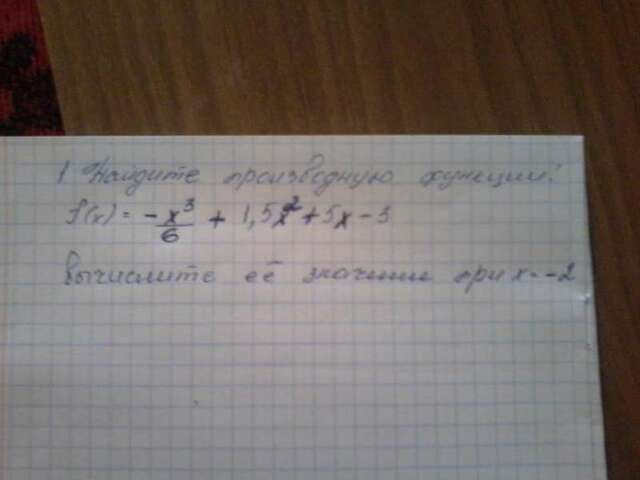 1 Найдите производную функции:
f(x) = -x³/6 + 1,5x² + 5x - 3
вычислите её значение при x = -2